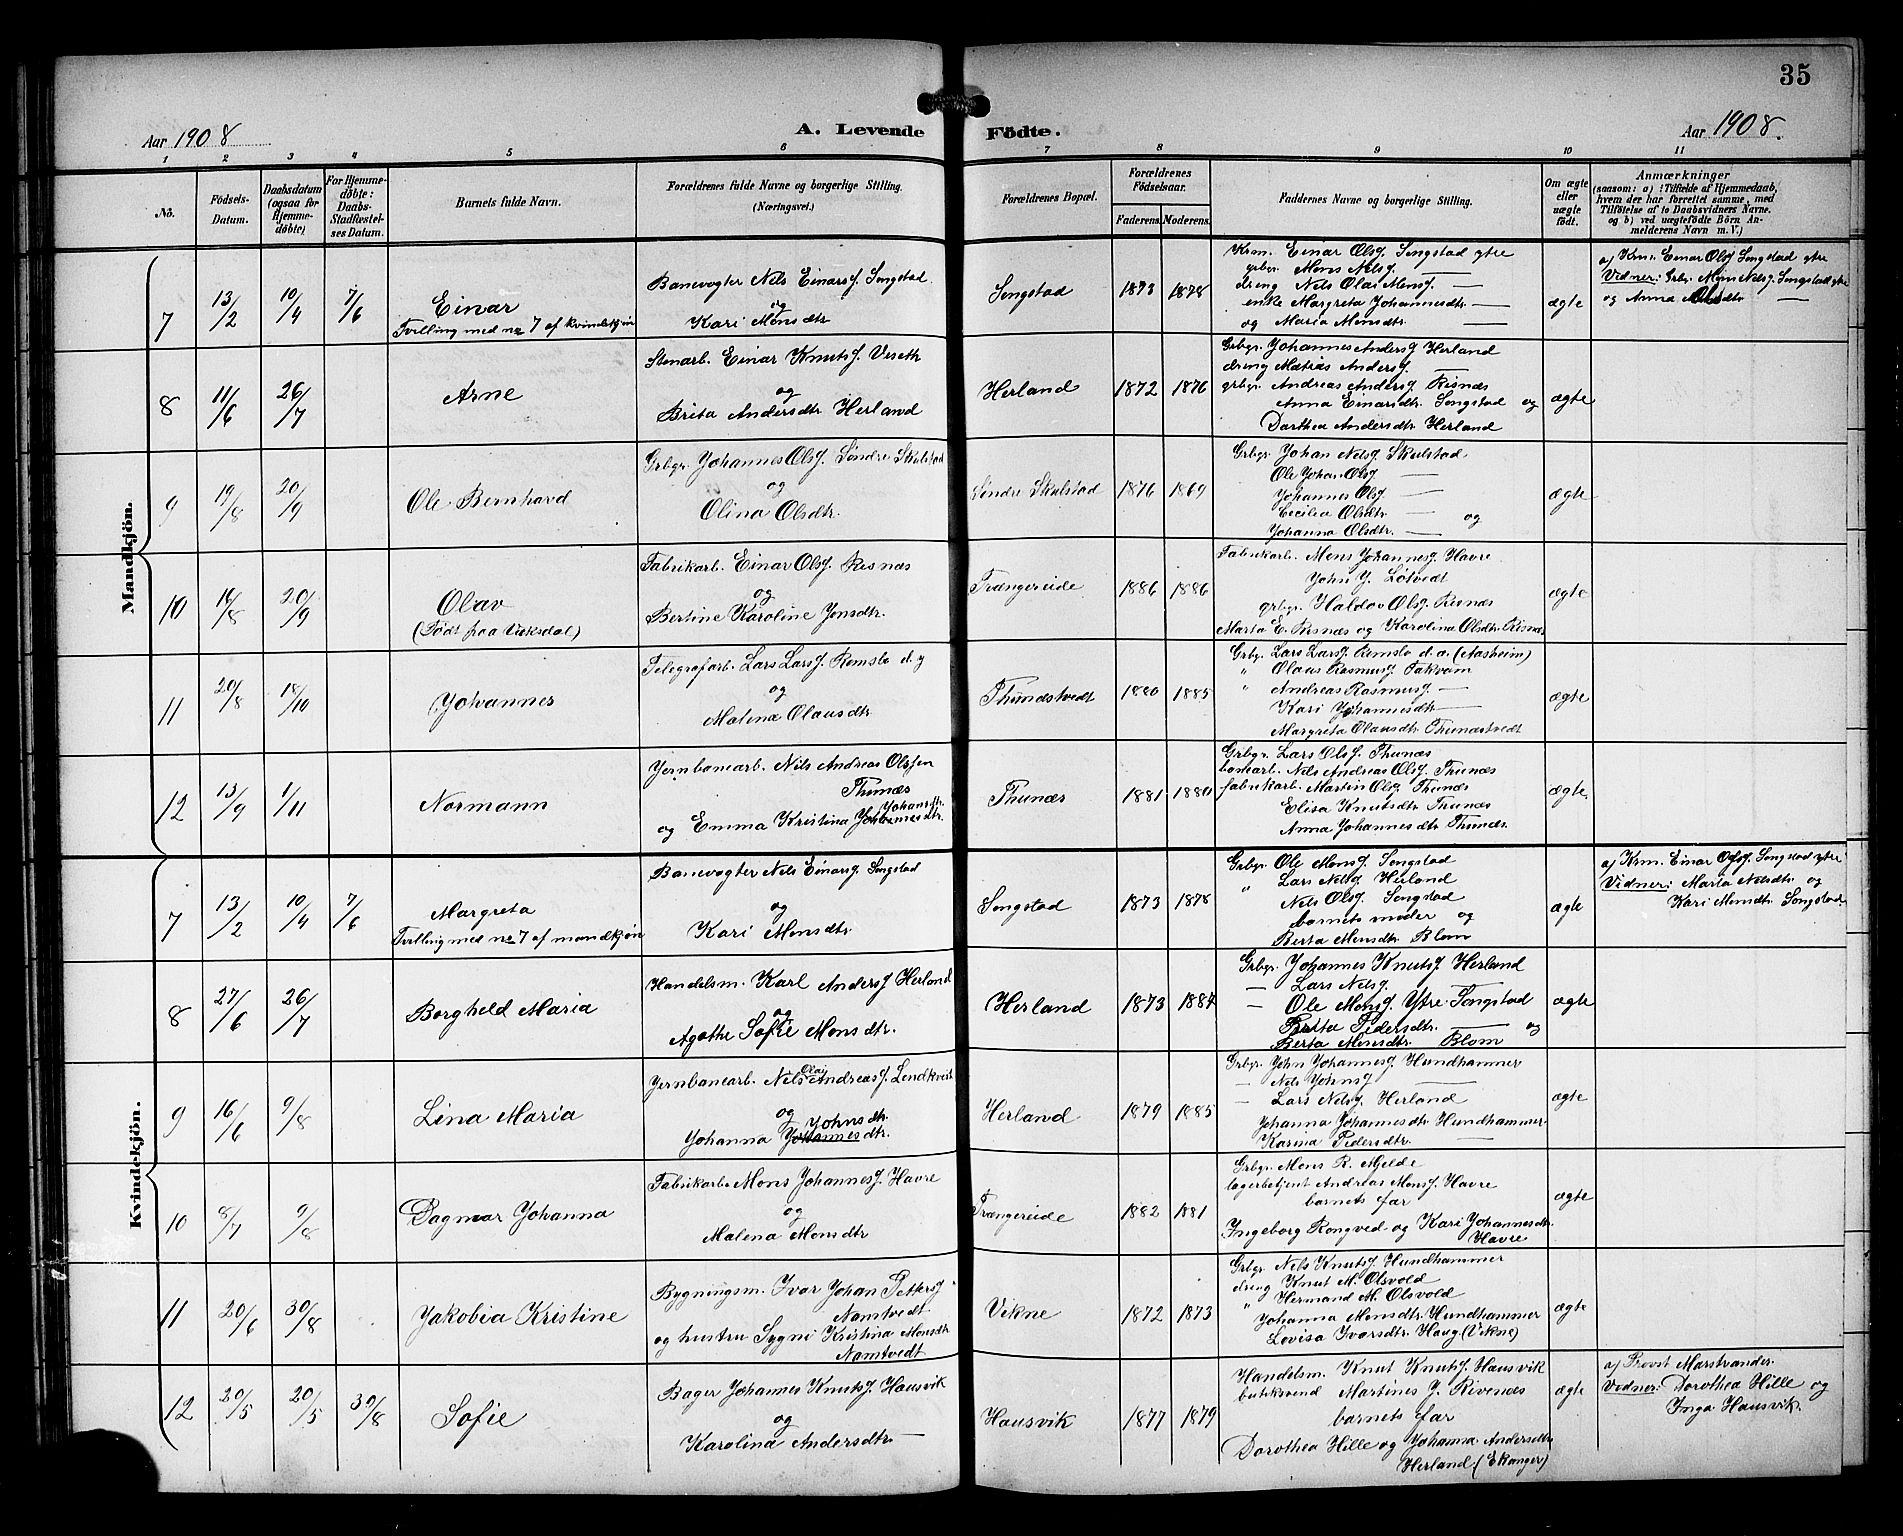 35
Aar 1908
A. Levende Födte.
Aar 1908.
1 2 3 4 5 6 7 8 9 10 11
No.
Födsels-Datum.
Daabsdatum (ogsaa for Hjemmedøbte)
For Hjemmedøbte: Daabs-Stadfæstelses Datum.
Barnets fulde Navn.
Forældrenes fulde Navne og borgerlige Stilling. (Næringsvei.)
Forældrenes Bopæl.
Forældrenes Födselsaar.
Faderens. Moderens.
Faddernes Navne og borgerlige Stilling.
Om ægte eller uægte født.
Anmærkninger
(saasom: a) i Tilfælde af Hjemmedaab, hvem der har forrettet samme, med Tilföielse af to Daabsvidners Navne. og b) ved uægtefödte Börn Anmelderens Navn m. V.)
Mandkjön.
7 13/2 10/4 7/6
Einar
Tvilling med no 7 af kvindekjøn
Banevogter Nils Einarsf. Songstad
og
Kari Monsdtr
Songstad 1873 1878
Krm. Einar Olsf. Songstad ytre
grbgr. Mons Nilsf. —
dreng Nils Olai Monsf. —
enke Margreta Johannesdtr —
og Maria Monsdtr. —
ægte
a) Krm. Einar Olsf Songstad ytre
Vidner: Grbr. Mons Nilsf. Songstad ytre
og Anna Olsdtr —
8 11/6 26/7
Arne
Stenarb. Einar Knutsf. Veseth
og
Brita Andersdtr Herland
Herland 1872 1876
Grbgr. Johannes Andersf Herland
dreng Matias Andersf. —
grbgr. Andreas Andersf Risnæs
Anna Einarsdtr. Songstad og
Dorthea Andersdtr. Herland
ægte
9 19/8 20/9
Ole Bernhard
Grbgr. Johannes Olsf. Søndre Skulstad
og
Olina Olsdtr.
Søndre Skulstad 1876 1869
Grbgr. Johan Nilsf. Skulstad
Ole Johan Olsf —
Johannes Olsf —
Cecilia Olsdtr — og
Johanna Olsdtr. —
ægte
10 14/8 20/9
Olav
(Født paa Vaksdal)
Fabrikarb. Einar Olsf. Risnæs
og
Bertine Karoline Jonsdtr.
Trængereide 1886 1886
Fabrikarb. Mons Johannesf Havre
John J. Løtvedt
grbgr. Haldor Olsf. Risnæs
Marta E. Risnæs og Karolina Olsdtr. Risnæs
ægte
11 20/8 18/10
Johannes
Telegrafarb. Lars Larsf. Romslo d.y
og
Malena Olausdtr.
Thunestvedt 1880 1885
Grbg. Lars Larsf. Romslo d.æ. (Aasheim)
" Olaus Rasmusf Takvam
" Andreas Rasmusf —
Kari Johannesdtr —
Margreta Olausdtr Thunestvedt
ægte
12 13/9 1/11
Normann
Jernbanearb. Nils Andreas Olsfen
Thunæs
og Emma Kristina Johannesdtr. Johansdtr.
Thunæs 1881 1880
Grbgr. Lars Olsf. Thunæs
banearb. Nils Andreas Olsf. Thunæs
fabrikarb. Martin Olsf. Thunæs
Elisa Knutsdtr Thunæs
Anna Johannesdtr Thunæs
ægte.
Kvindekjön.
7 13/2 10/4 7/6
Margreta
Tvilling med no 7 af mandkjøn
Banevogter Nils Einarsf. Songstad
og
Kari Monsdtr
Songstad 1873 1878
Grbgr. Ole Monsf. Songstad
" Lars Nilsf Herland
Nils Olsf. Songstad
barnets moder og
Berta Monsdtr. Blom
ægte
a) Krm. Einar Olsf. Songstad ytre
Vidner: Marta Nilsdtr og
Kari Monsdtr Songstad
8 27/6 26/7
Borghild Maria
Handelsm. Karl Andersf Herland
og
Agathe Sofie Monsdtr.
Herland 1873 1884
Grbgr. Johannes Knutsf Herland
— Lars Nilsf. —
— Ole Monsf. Ytre Songstad
Berta Pedersdtr. — og
Berta Monsdtr. Blom
ægte
9 16/6 9/8
Lina Maria
Jernbanearb. Nils Olai Andreasf. Lendkvist
og
Johanna Johannesdtr. Johnsdtr.
Herland 1879 1885
Grbgr. John Johannesf Hundhammer
— Nils Johnsf —
— Lars Nilsf Herland
Johanna Johannesdtr Hundhammer
Karina Pedersdtr. —
ægte
10 8/7 9/8
Dagmar Johanna
Fabrikarb. Mons Johannesf. Havre
og
Malena Monsdtr
Trængereide 1882 1881
Grbgr. Mons R. Mjelde
lagerbetjent Andreas Monsf. Havre
barnets far
Ingeborg Rongved og Kari Johannesdtr.
Havre
ægte
11 20/6 30/8
Jakobia Kristine
Bygningsm. Ivar Johan Pettersf
Namtvedt
og hustru Sygni Kristina Monsdtr
Namtvedt
Vikne 1872 1873
Grbgr Nils Knutsf. Hundhammer
dreng Knut M. Olsvold
" Hermand M. Olsvold
Johanna Monsdtr. Hundhammer
Lovisa Ivarsdtr. Haug (Vikne)
ægte
12 20/5 20/5 30/8
Sofie
Bager Johannes Knutsf. Hausvik
og
Karolina Andersdtr. —
Hausvik 1877 1879
Handelsm. Knut Knutsf. Hausvik
butiksvend Martines J. Rivenæs
barnets far
Dorothea Hille og Johanna Andersdtr
Herland. (Ekanger)
ægte
a) Provst Marstrander.
Vidner: Dorothea Hille og
Inga Hausvik.